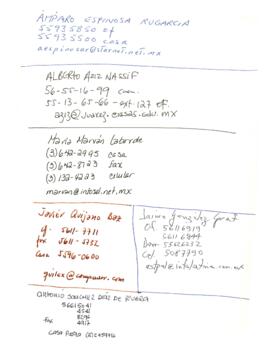 AMPARO ESPINOSA RUGARCIA
55935850 of
55935500 casa
aespinosar@sfernet.net.mx
ALBERTO AZIZ NASSIF
56-55-16-99 cam.
55-13-65-66 - ext. 127 of.
aziz@juarez.ciesas.edu.mx
María Marván Laborde
(3) 642-2995 casa
(3) 642-8723 fax
(3) 132-9223 celular
marvan@infosel.net.mx
Javier Quijano Baz
of. 5611-7711
fax 5611-5732
Casa 5596-0600
quibax@compuserve.com
Jaime González Graf
Of. 56116919
56116944
Dom 55626232
Cel 5087790
@infolatina.com.mx
ANTONIO SANCHEZ DIAZ DE RIVERA
56615041
4541
8296
fax 4917
CASA